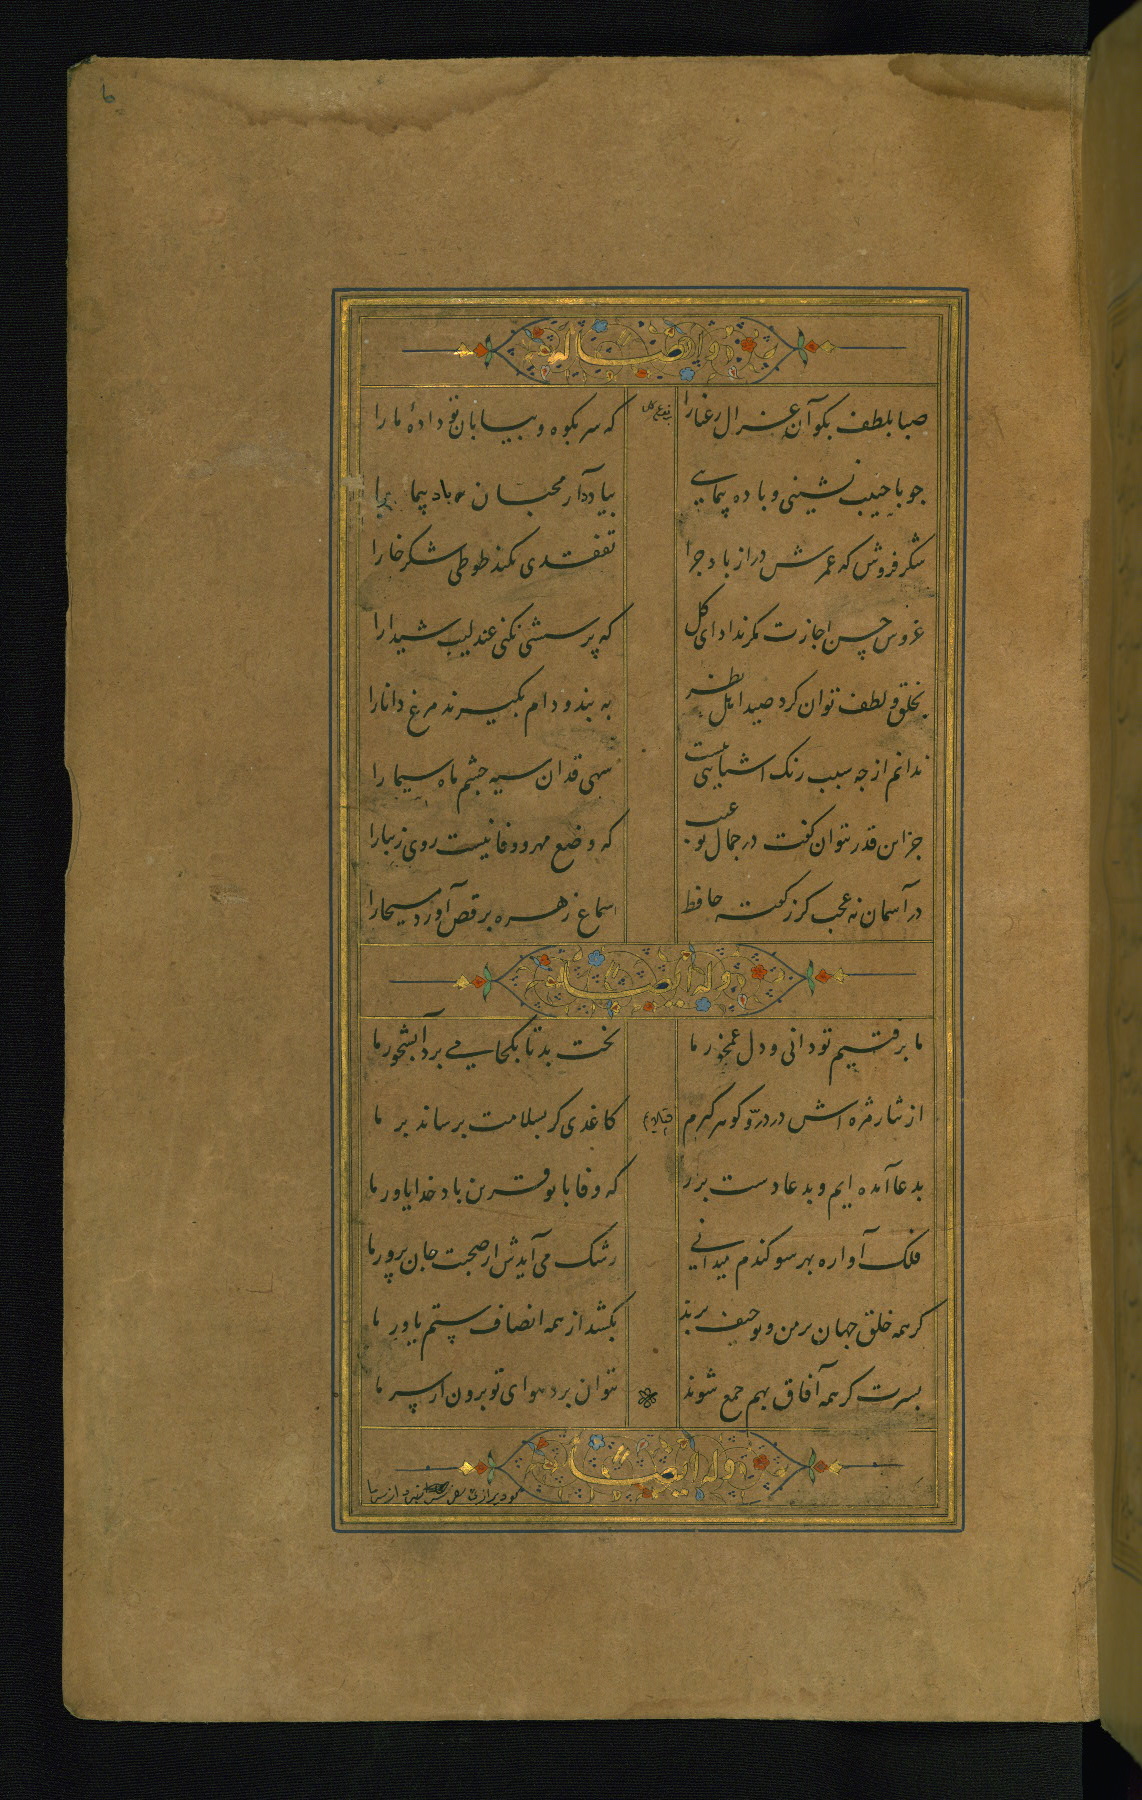 وله ایضا
صبا بلطف بکو آن غزال رعنارا که سر بکوه و بیابان تو دادهٔ ما را
جو با حبیب نشینی و باده پیمایی بیاد دار محبان باد پیما را
شکر فروش که عمرش دراز باد جرا تفقدی نکند طوطی شکر خارا
غرور حسن اجازت مکر نداد ای کل که پرسشی نکنی عندلیب شیدارا
بخلق و لطف توان کرد صید اهل نظر به بند و دام نکیرند مرغ دانارا
ندانم از جه سبب رنک آشنایی نیست سهی قدان سیه جشم ماه سیما را
جز این قدر نتوان کفت در جمال تو عیب که وضع مهر و وفا نیست روی زیبارا
در آسمان نه عجب کر ز کفته حافظ سماع زهره برقص آورد مسیحارا
وله ایضا
ما برفتیم تو دانی و دل غمخور ما بخت بد تا بکجا می برد آبشخور ما
از نثار مژه اش در در و کوهر کیرم کاغدی کر بسلامت برساند بر ما
بدعا آمده ایم و بدعا دست برار که وفا با تو قرین باد خدا یاور ما
فلک آواره بهر سو کندم میدانی رشک می آیدش از صحبت جان پرور ما
کر همه خلق جهان بر من و تو حیف برند بکشد از همه انصاف ستم یاور ما
بسرت کر همه آفاق بهم جمع شوند نتوان برد هوای تو برون از سر ما
وله ایضا